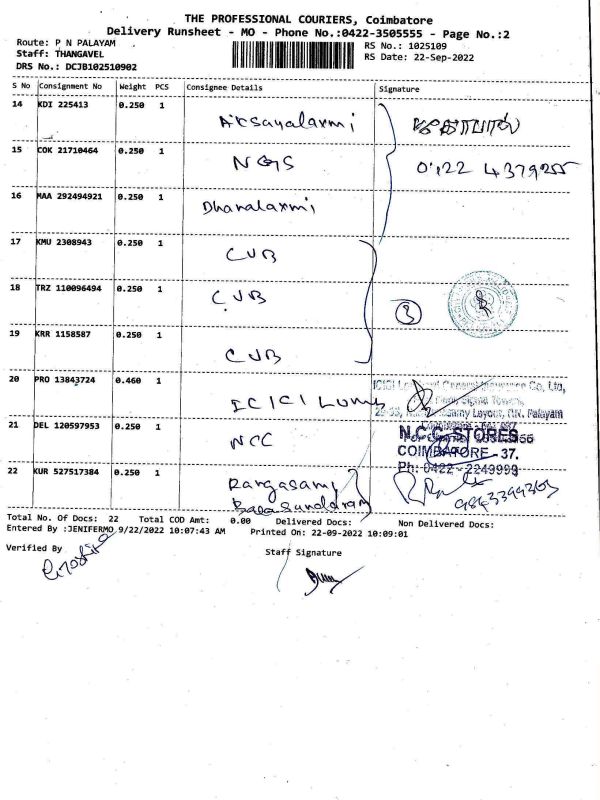 THE PROFESSIONAL COURIERS, Coimbatore
Delivery Runsheet - MO - Phone No.:0422-3505555 - Page No.:2
Route: P N PALAYAM
RS No.: 1025109
Staff: THANGAVEL
RS Date: 22-Sep-2022
DRS No.: DCJB102510902
S No Consignment No Weight PCS Consignee Details Signature
14 KDI 225413 0.250 1
15 COK 21710464 0.250 1 NGS
16 MAA 292494921 0.250 1 Dhanalaxmi
17 KMU 2308943 0.250 1 CUB
18 TRZ 110096494 0.250 1 CUB
3
19 KRR 1158587 0.250 1 CUB
20 PRO 13843724 0.460 1 ICICI Lumb
General Insurance Co, Ltd,
Layout, P.N. Palayam
21 DEL 120597953 0.250 1 NCC
N.C.C STORES
COIMBATORE - 37.
Ph: 0422 - 2249999
22 KUR 527517384 0.250 1 Rangasami
Balasundaram
Total No. Of Docs: 22 Total COD Amt: 0.00 Delivered Docs: Non Delivered Docs:
Entered By :JENIFERMO 9/22/2022 10:07:43 AM Printed On: 22-09-2022 10:09:01
Verified By
Staff Signature